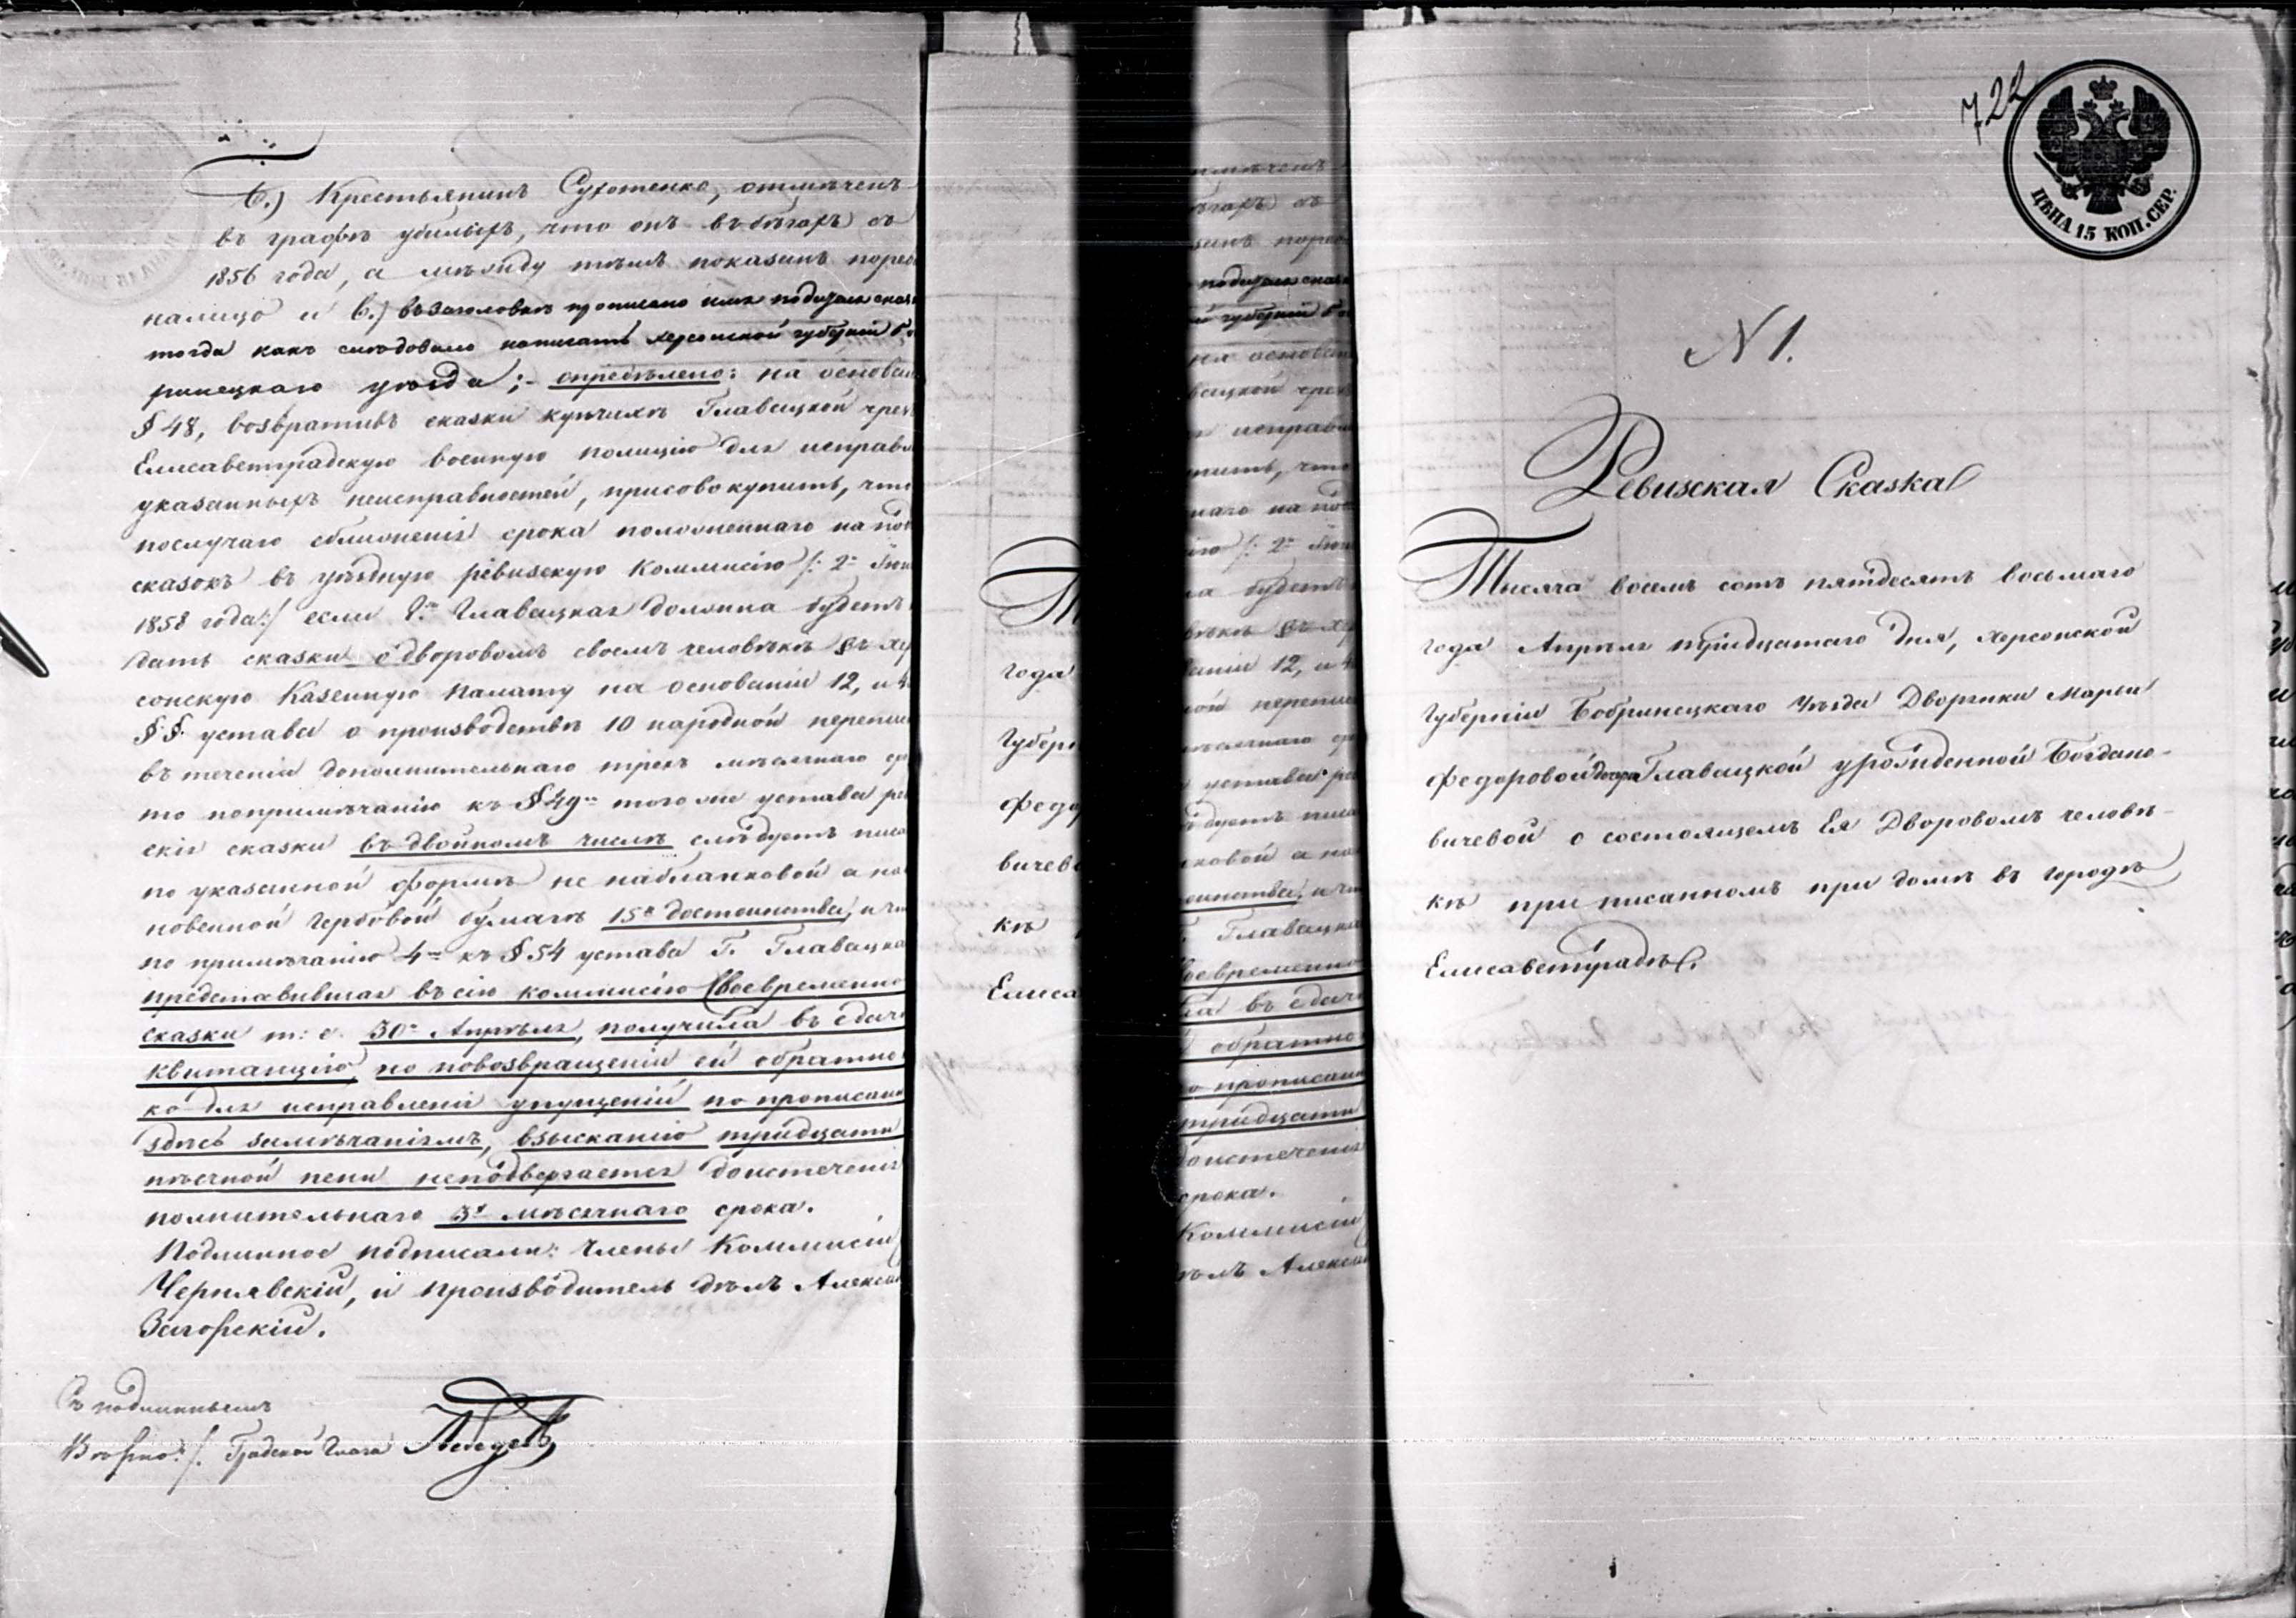 б.) Крестьянинъ Сухотенко, отмѣченъ
въ графѣ убылыхъ, что онъ въ бѣгахъ съ
1856 года, а между тѣмъ показанъ
налицо и в.) въ заголовкѣ прописано
тогда какъ слѣдовало написать Херсонской губерніи Бо
ринецкаго уѣзда; - опредѣлено: на основан
§ 48, возвративъ сказки купчихѣ Главацкой чрез
Елисаветградскую военную полицію для исправл
указанныхъ неисправностей, присовокупить, что
послучаю сближенія срока положеннаго на под
сказокъ въ уѣздную ревизскую Коммисію /: 2го Іюн
1858 года:/ если Г.жа Главацкая должна будетъ
дать сказки о дворовомъ своемъ человѣкѣ въ Хер
сонскую Казенную Палату на основаніи 12, и 4
§§. устава о производствѣ 10 народной переписи
въ теченіи дополнительнаго трехъ мѣсячнаго ср
то попримѣчанію къ § 49му того же устава рев
скія сказки въ двойномъ числѣ слѣдуетъ писа
по указанной формѣ не набланковой а на
новенной гербовой бумагѣ 15к достоинства, и что
по примѣчанію 4му къ § 54 устава Г. Главацка
представившая въ сію коммисію своевременно
сказки т: е. 30го Апрѣля, получила въ сдачѣ
квитанцію, по новозвращеніи ей обратно
ко для исправленія упущеній по прописан
здѣсь замѣчаніямъ, взысканію тридцати
пѣечной пени неподвергается доистеченія
полнительнаго 3х мѣсячнаго срока.
Подлинное подписали: Члены Коммисіи
Чернявскій, и производитель дѣлъ Алекса
Загорскій.
Съ подлиннымъ
Вѣрно: /. Градской Глава Лебедевъ
Т
года
Губерн
Федо
вичево
кѣ
Елиса
722
ЦѢНА 15 КОП. СЕР.
N 1.
Ревизская Сказка
Тысяча восемь сотъ пятдесятъ восьмаго
года Апрѣля тридцатаго дня, Херсонской
Губерніи Бобринецкаго Уѣзда Дворянки Марьи
Федоровой дочери Главацкой урожденной Богдано-
вичевой о состоящемъ Ея Дворовомъ человѣ-
кѣ приписанномъ при домѣ въ городѣ
Елисаветградѣ.